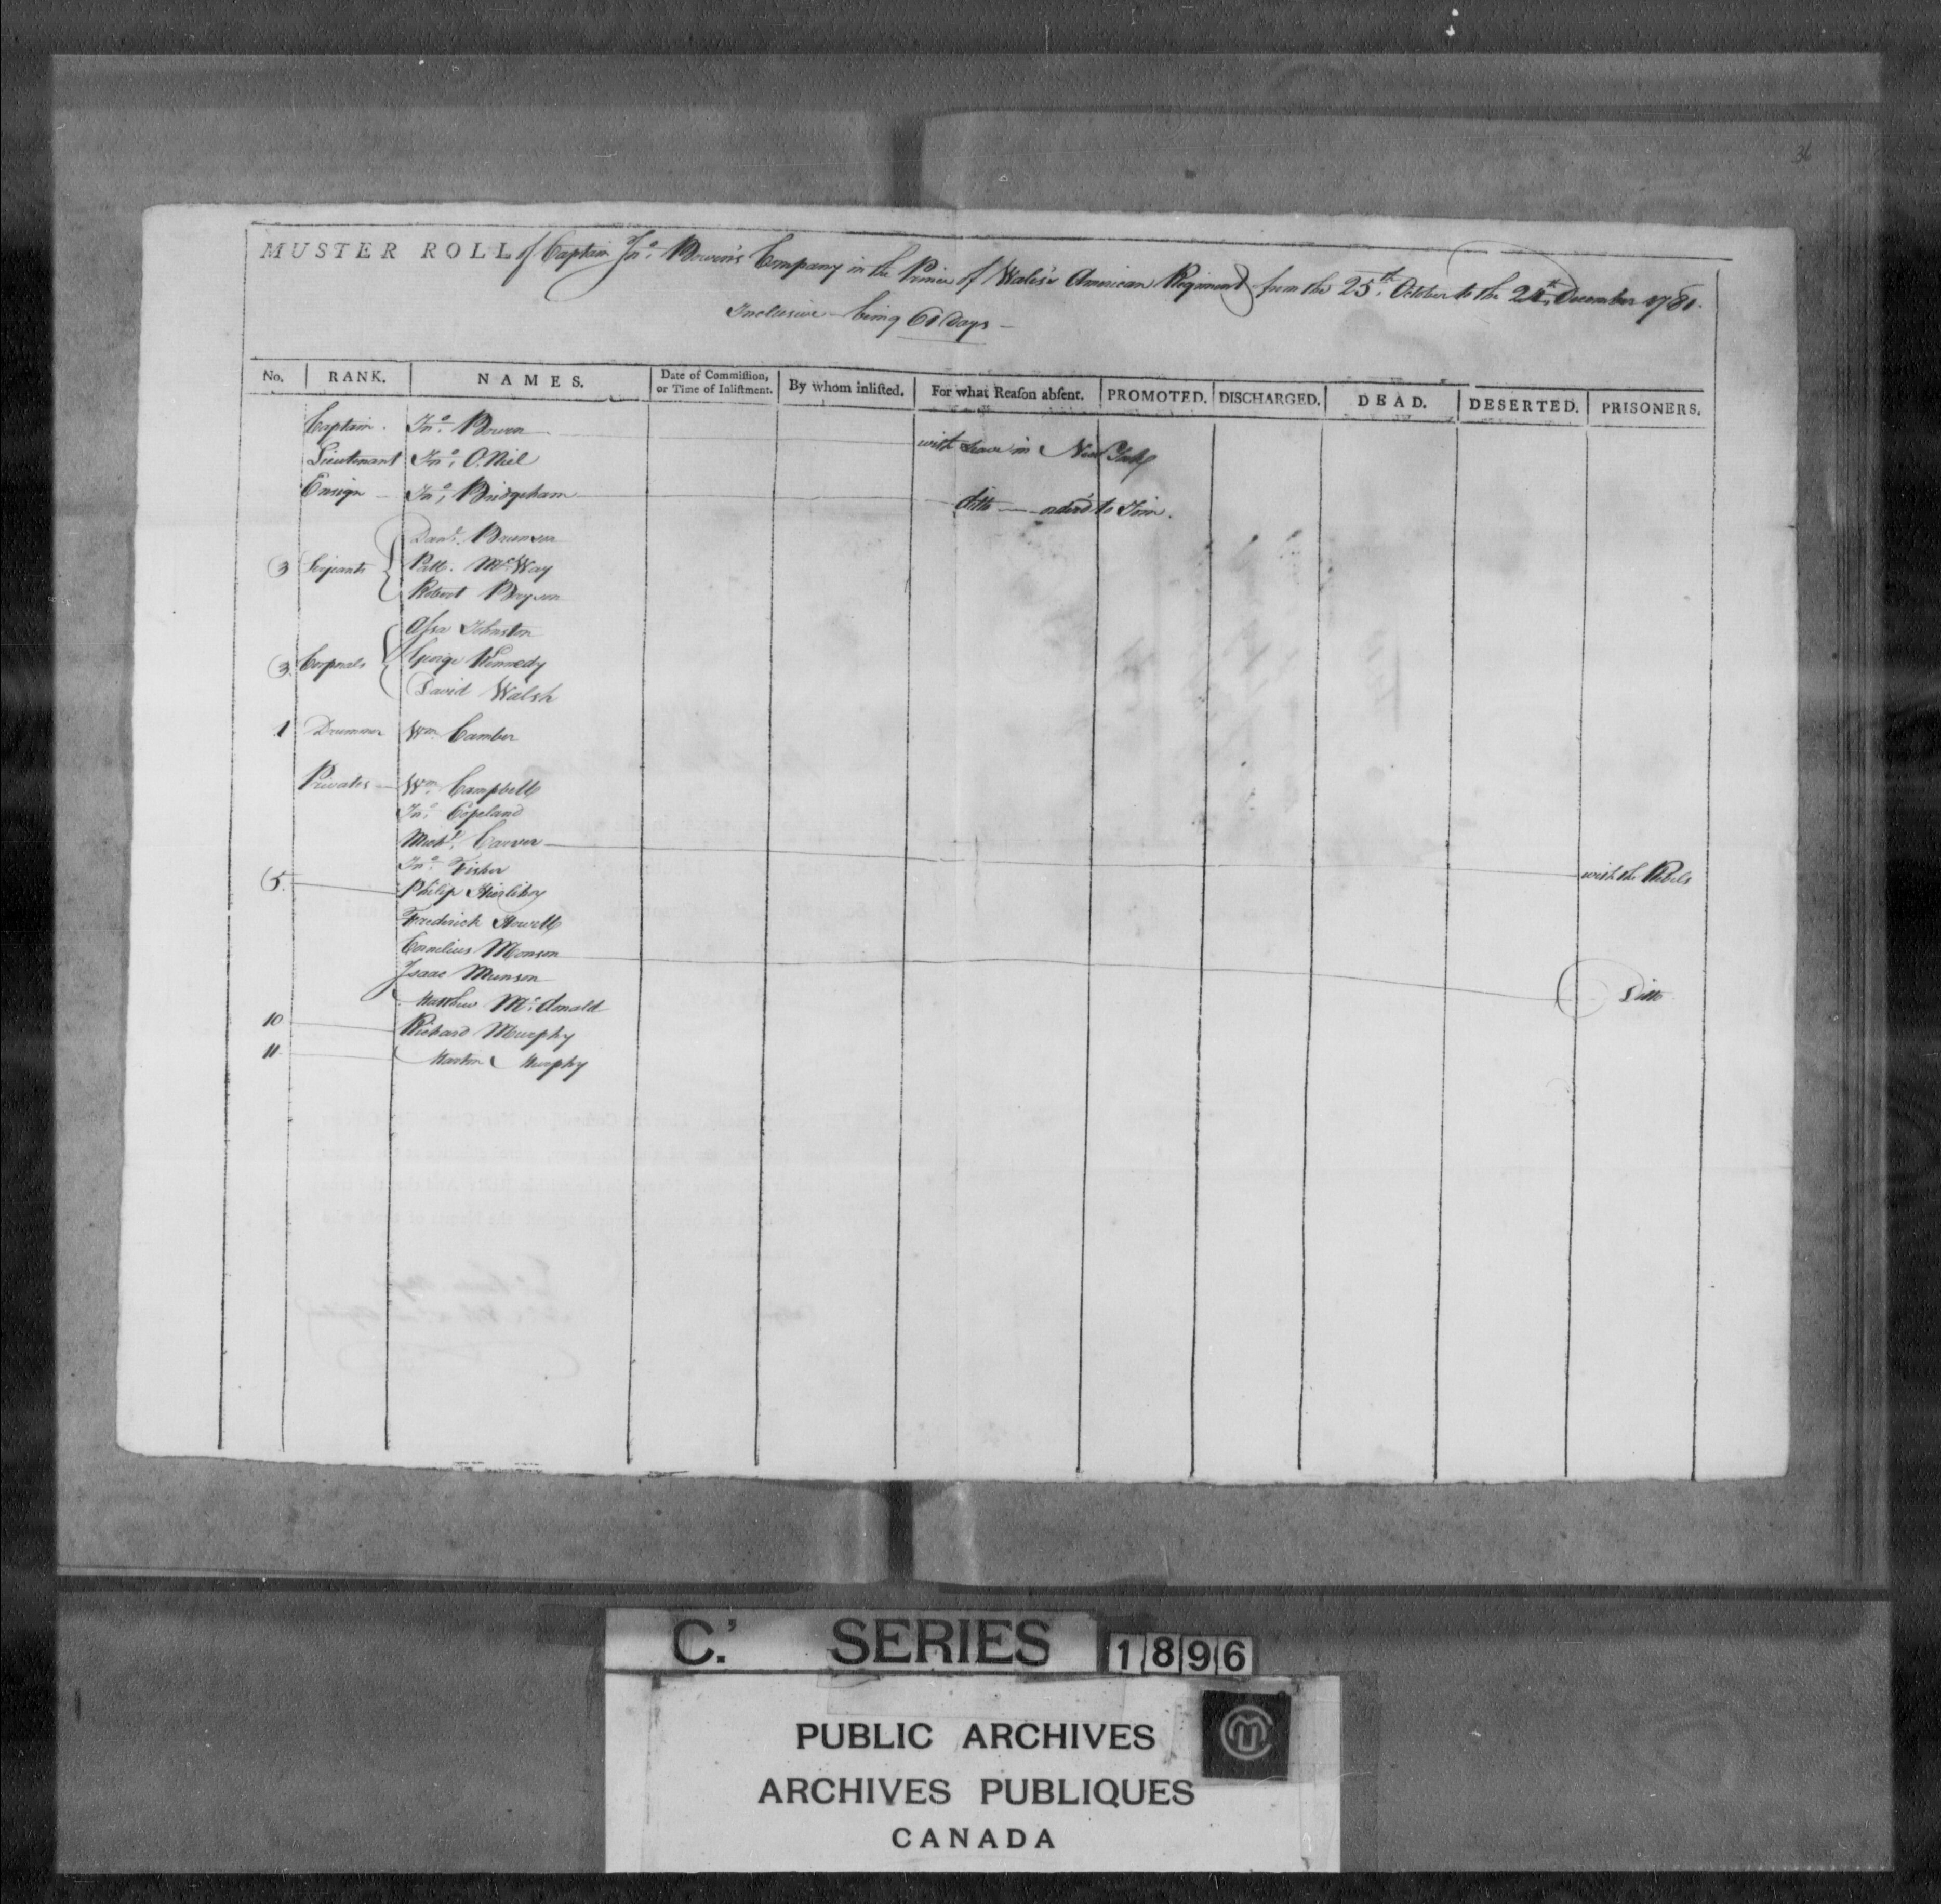 36
MUSTER ROLL of Captain Jno. Bowen's Company in the Prince of Wales's American Regiment from the 25th. October to the 24th. December 1781.
Inclusive being 61 Days
No. RANK. NAMES. Date of Commission, or Time of Inlistment. By whom inlisted. For what Reason absent. PROMOTED. DISCHARGED. DEAD. DESERTED. PRISONERS.
Captain. Jno. Bowen with Leave in New York
Lieutenant Jno. O.Niel
Ensign Jno. Bridgeham ditto order'd to Join.
Danl. Brunson
3 Serjeants Patk. McWay
Robert Bryson
Assa Johnston
3 Corporals George Kennedy
David Walsh
1 Drummer Wm. Camber
Privates Wm. Campbell
Jno. Copeland
Michl. Carver with the Rebels
Jno. Fisher
5. Philip
Frederick Howell
Cornelius Monson Ditto
Isaac Munson
Matthew Mc.donald
10 Richard Murphy
11 Martin Murphy
C.' SERIES 1896
PUBLIC ARCHIVES
ARCHIVES PUBLIQUES
CANADA